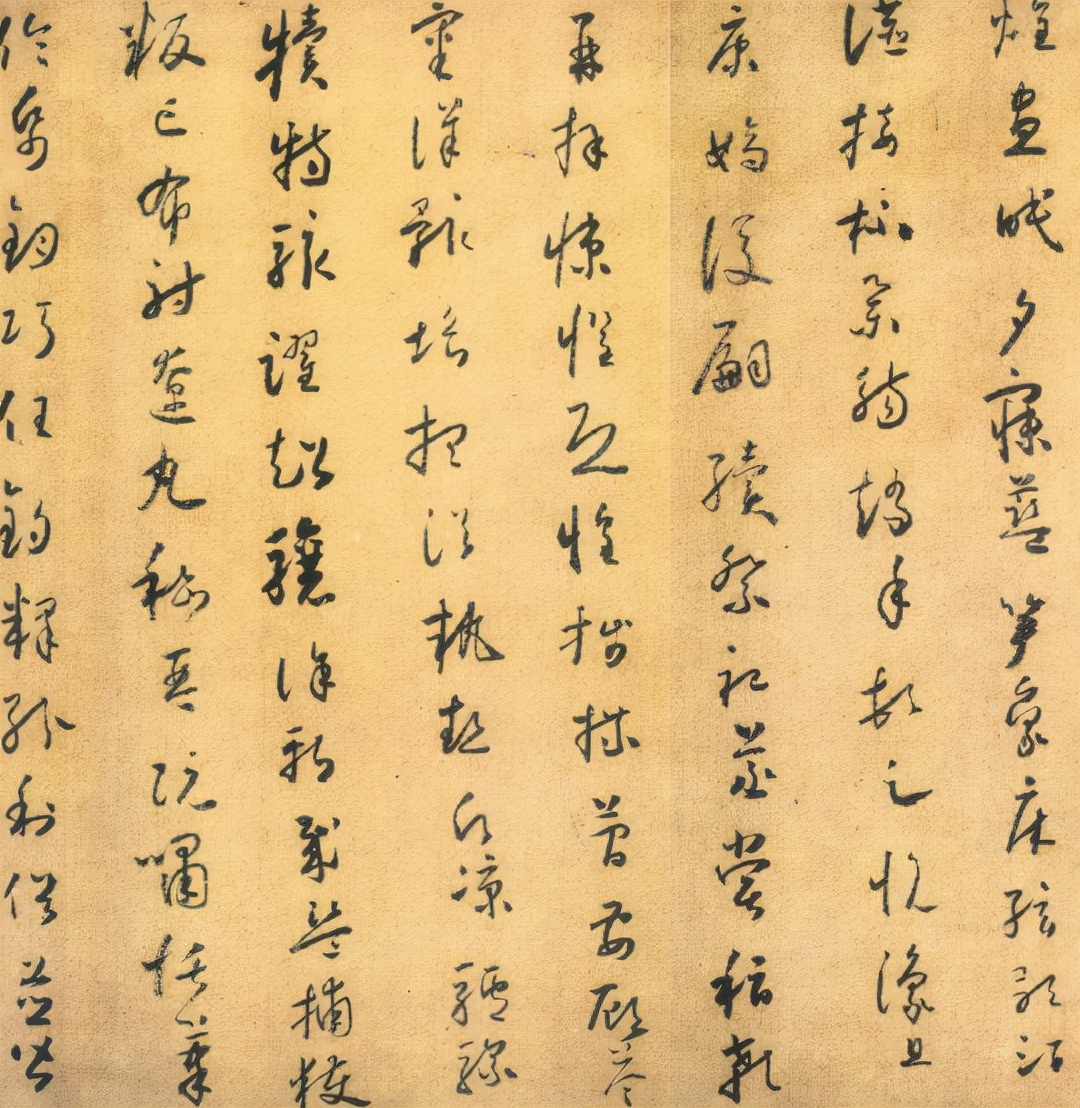 煌晝眠夕寐藍笋象床弦歌酒
讌接杯舉觴矯手頓足悅豫且
康嫡後嗣續祭祀蒸嘗稽顙
再拜悚懼恐惶牋牒簡要顧答
審詳骸垢想浴執熱願凉驢騾
犢特駭躍超驤誅斬賊盜捕獲
叛亡布射遼丸嵇琴阮嘯恬筆
倫紙鈞巧任釣釋紛利俗並皆